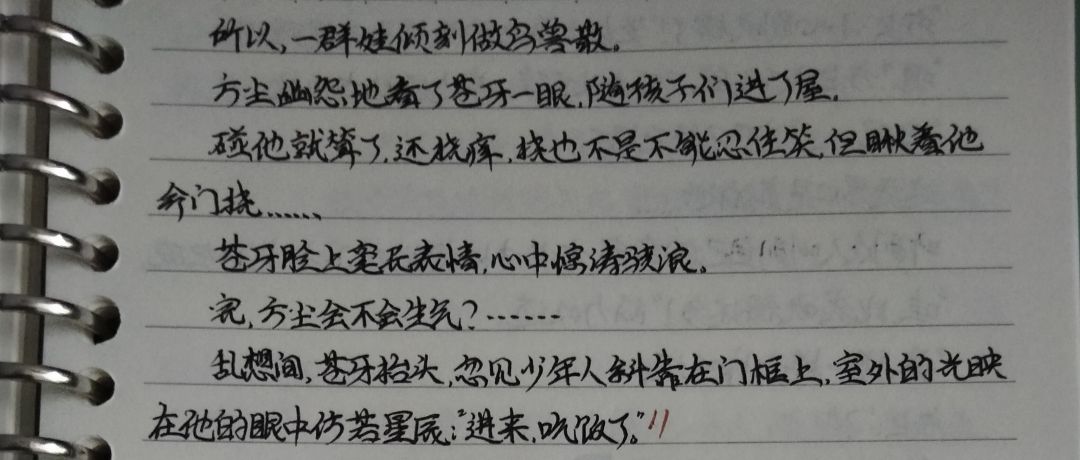 所以,一群娃倾刻做鸟兽散。
方尘幽怨地看了苍牙一眼,随孩子们进了屋。
碰他就算了,还挠痒,挠也不是不能忍住笑,但瞅着他
今门挠……
苍牙脸上毫无表情,心中惊涛骇浪。
完,方尘会不会生气?……
乱想间,苍牙抬头,忽见少年人斜靠在门框上,室外的光映
在他的眼中仿若星辰:"进来,吃饭了。"